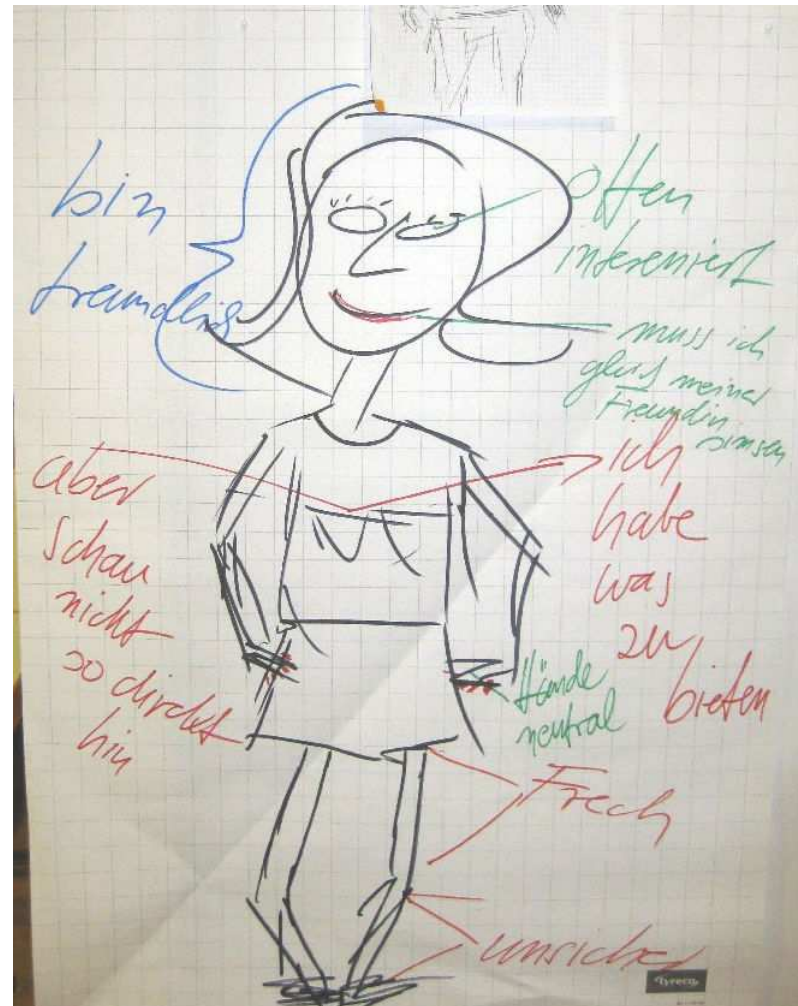 bin
freundlich
offen
interessiert
muss ich
gleich meiner
Freundin
simsen
aber
schau
nicht
so direkt
hin
ich
habe
was
zu
bieten
Hände
neutral
Frech
unsicher